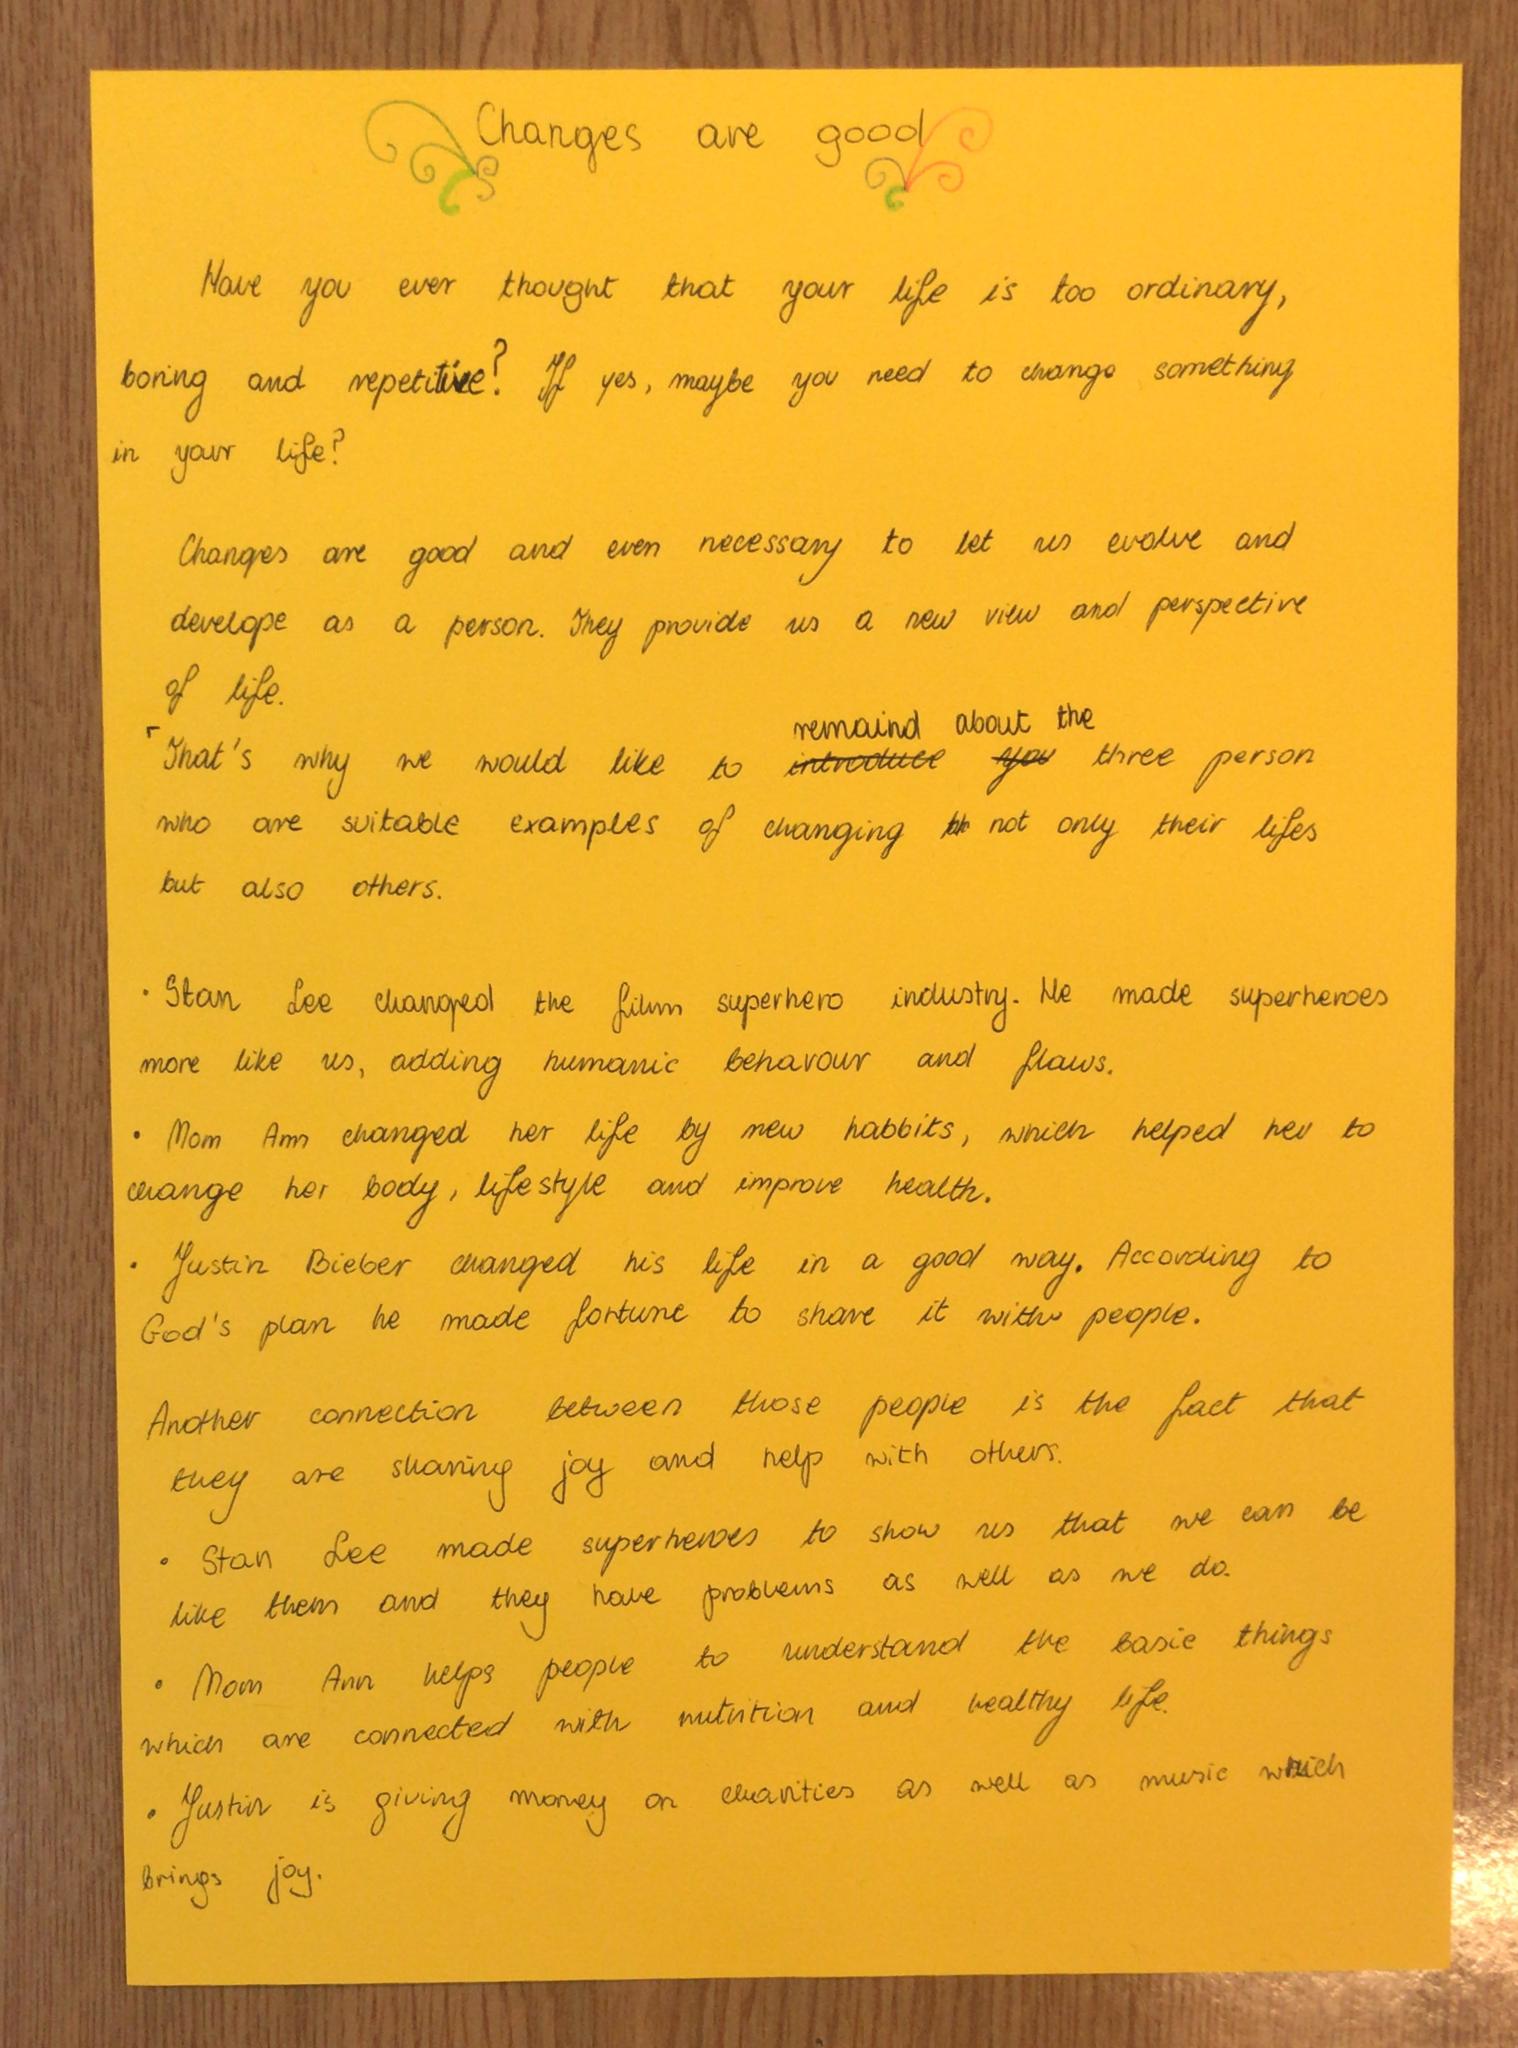 Changes are good
Have you ever thought that your life is too ordinary,
boring and repetitive? If yes, maybe you need to change something
in your life?
Changes are good and even necessary to let us evolve and
develope as a person. They provide us a new view and perspective
of life.
remaind about the
That's why we would like to introduce you three person
who are suitable examples of changing not only their lifes
but also others.
• Stan Lee changed the film superhero industry. He made superheroes
more like us, adding humanic behavour and flaws.
• Mom Ann changed her life by new habbits, which helped her to
change her body, lifestyle and improve health.
• Justin Bieber changed his life in a good way. According to
God's plan he made fortune to share it with people.
Another connection between those people is the fact that
they are sharing joy and help with others.
• Stan Lee made superheroes to show us that we can be
like them and they have problems as well as we do.
• Mom Ann helps people to understand the basic things
which are connected with nutrition and healthy life.
• Justin is giving money on charities as well as music which
brings joy.